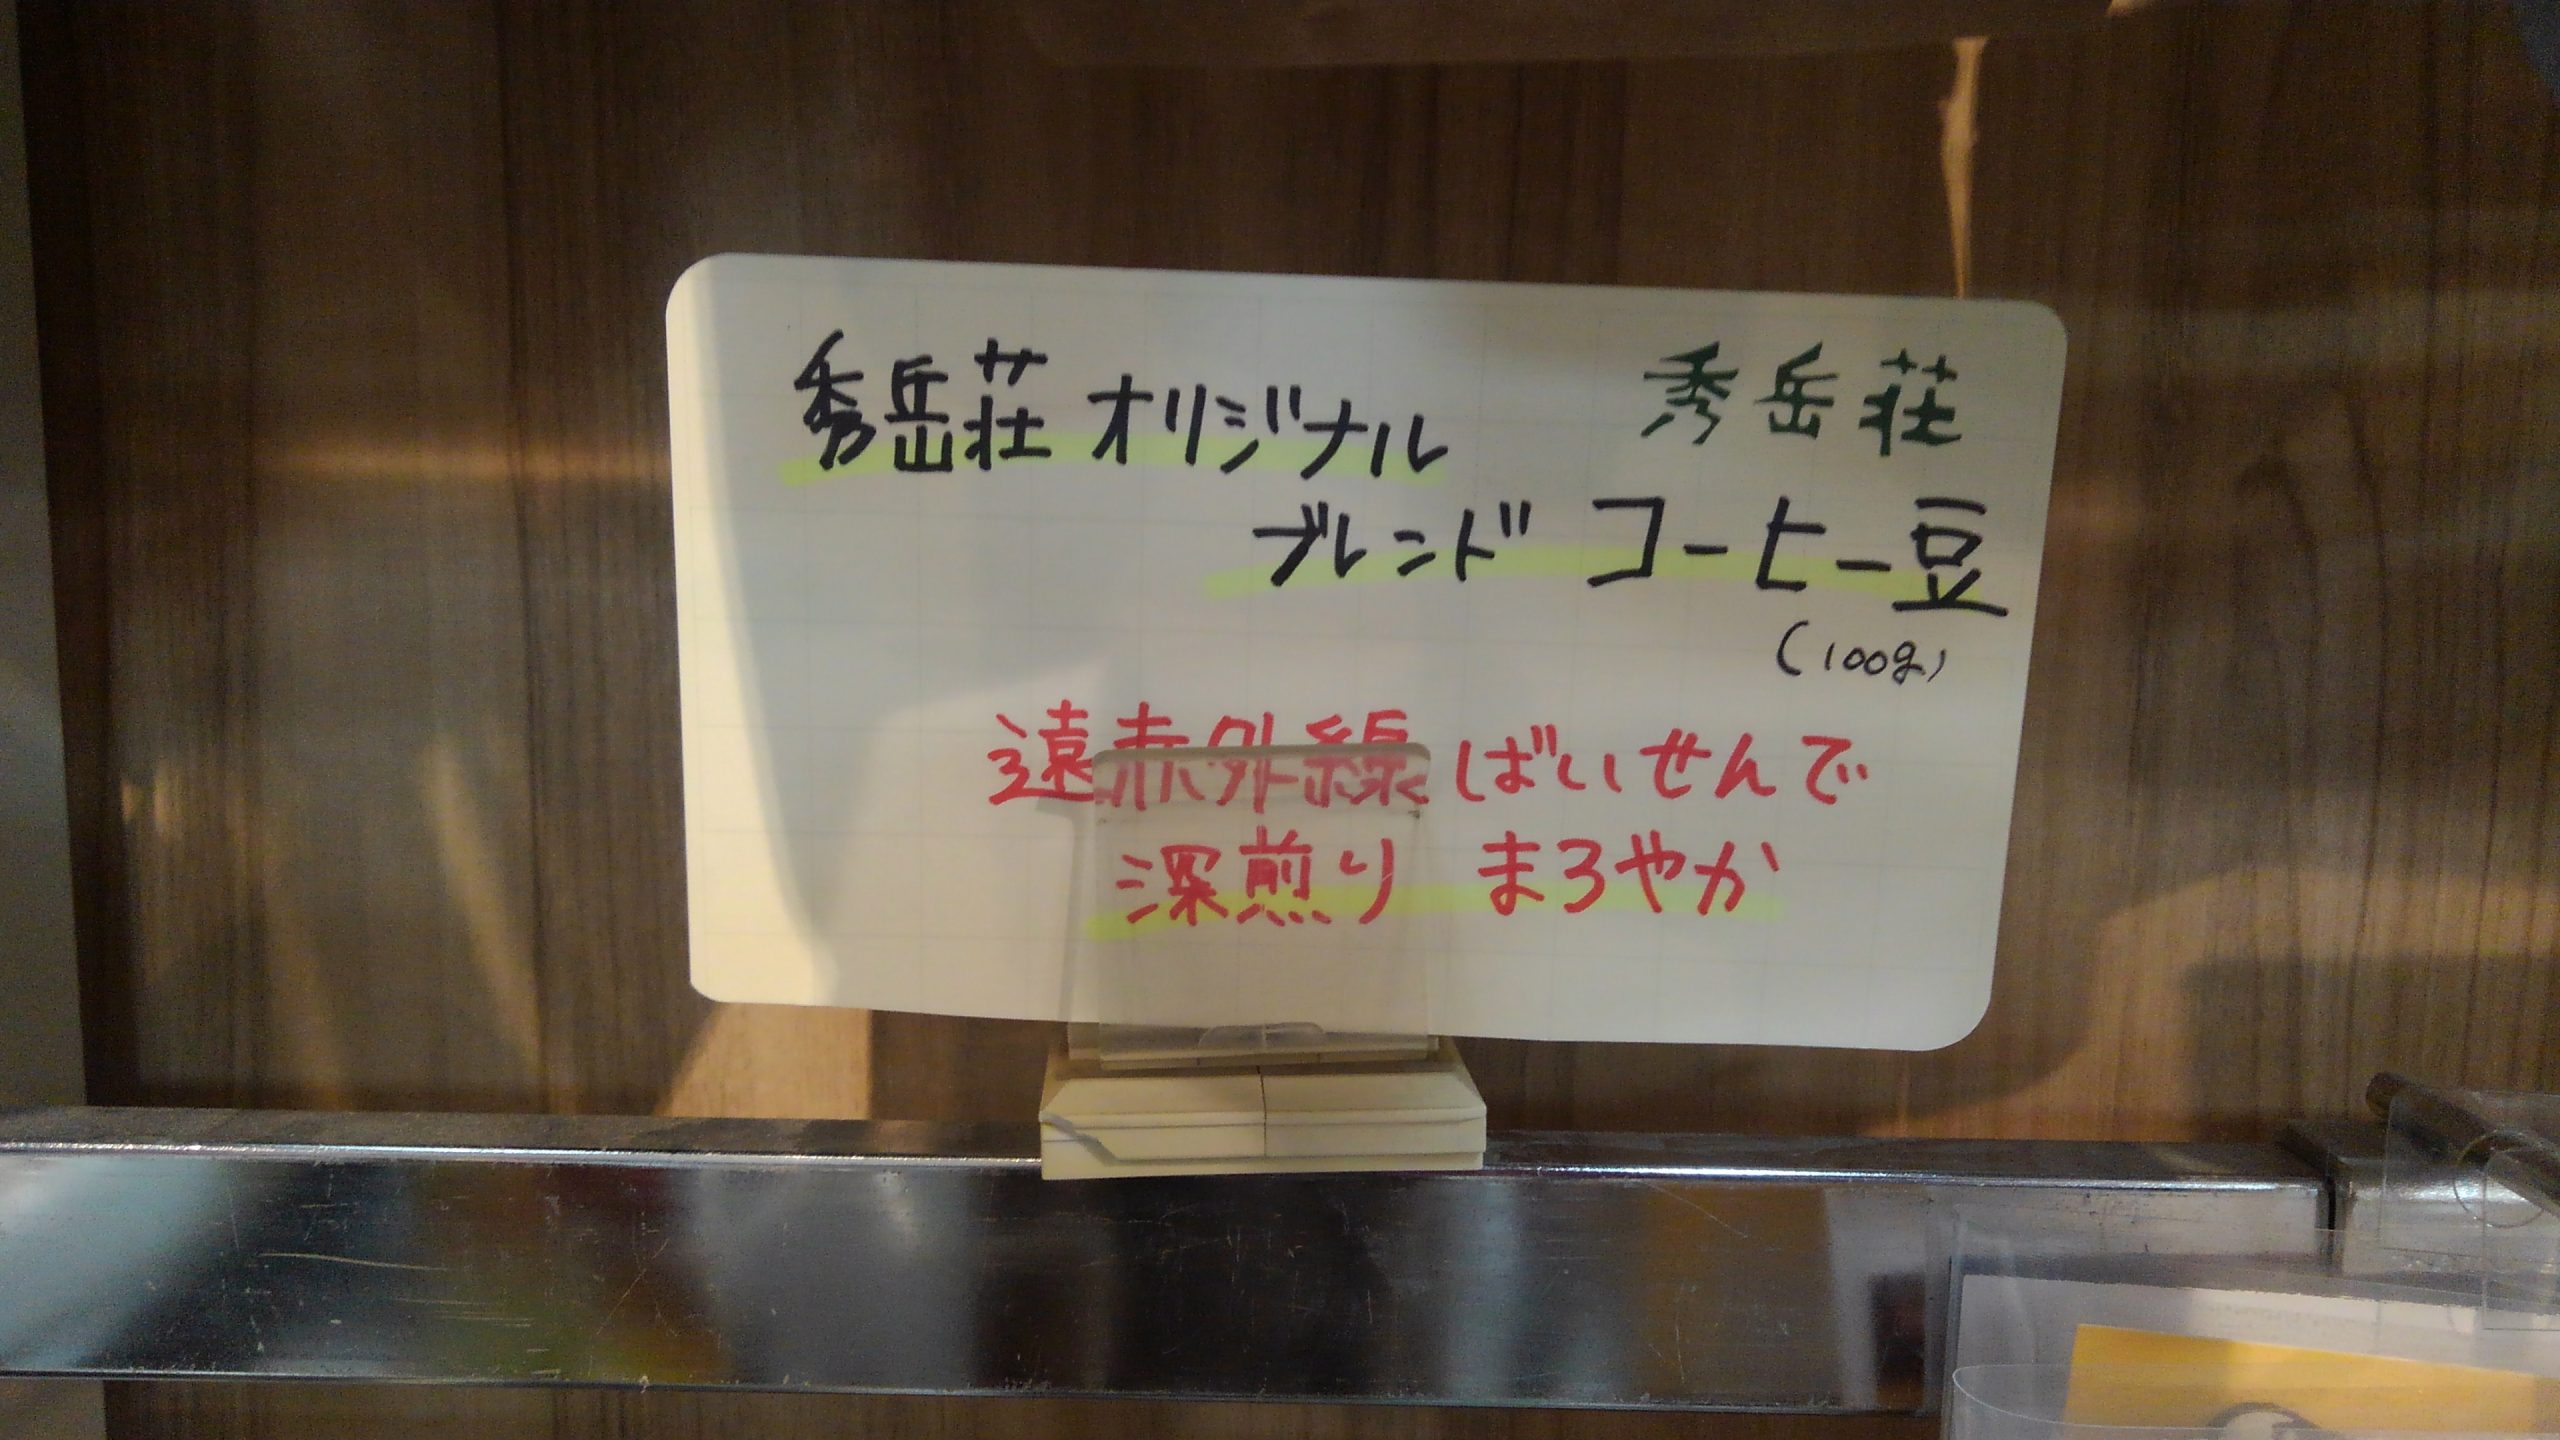 秀岳荘 オリジナル
秀岳荘
ブレンド コーヒー豆
(100g)
遠赤外線 ばいせんで
深煎り まろやか